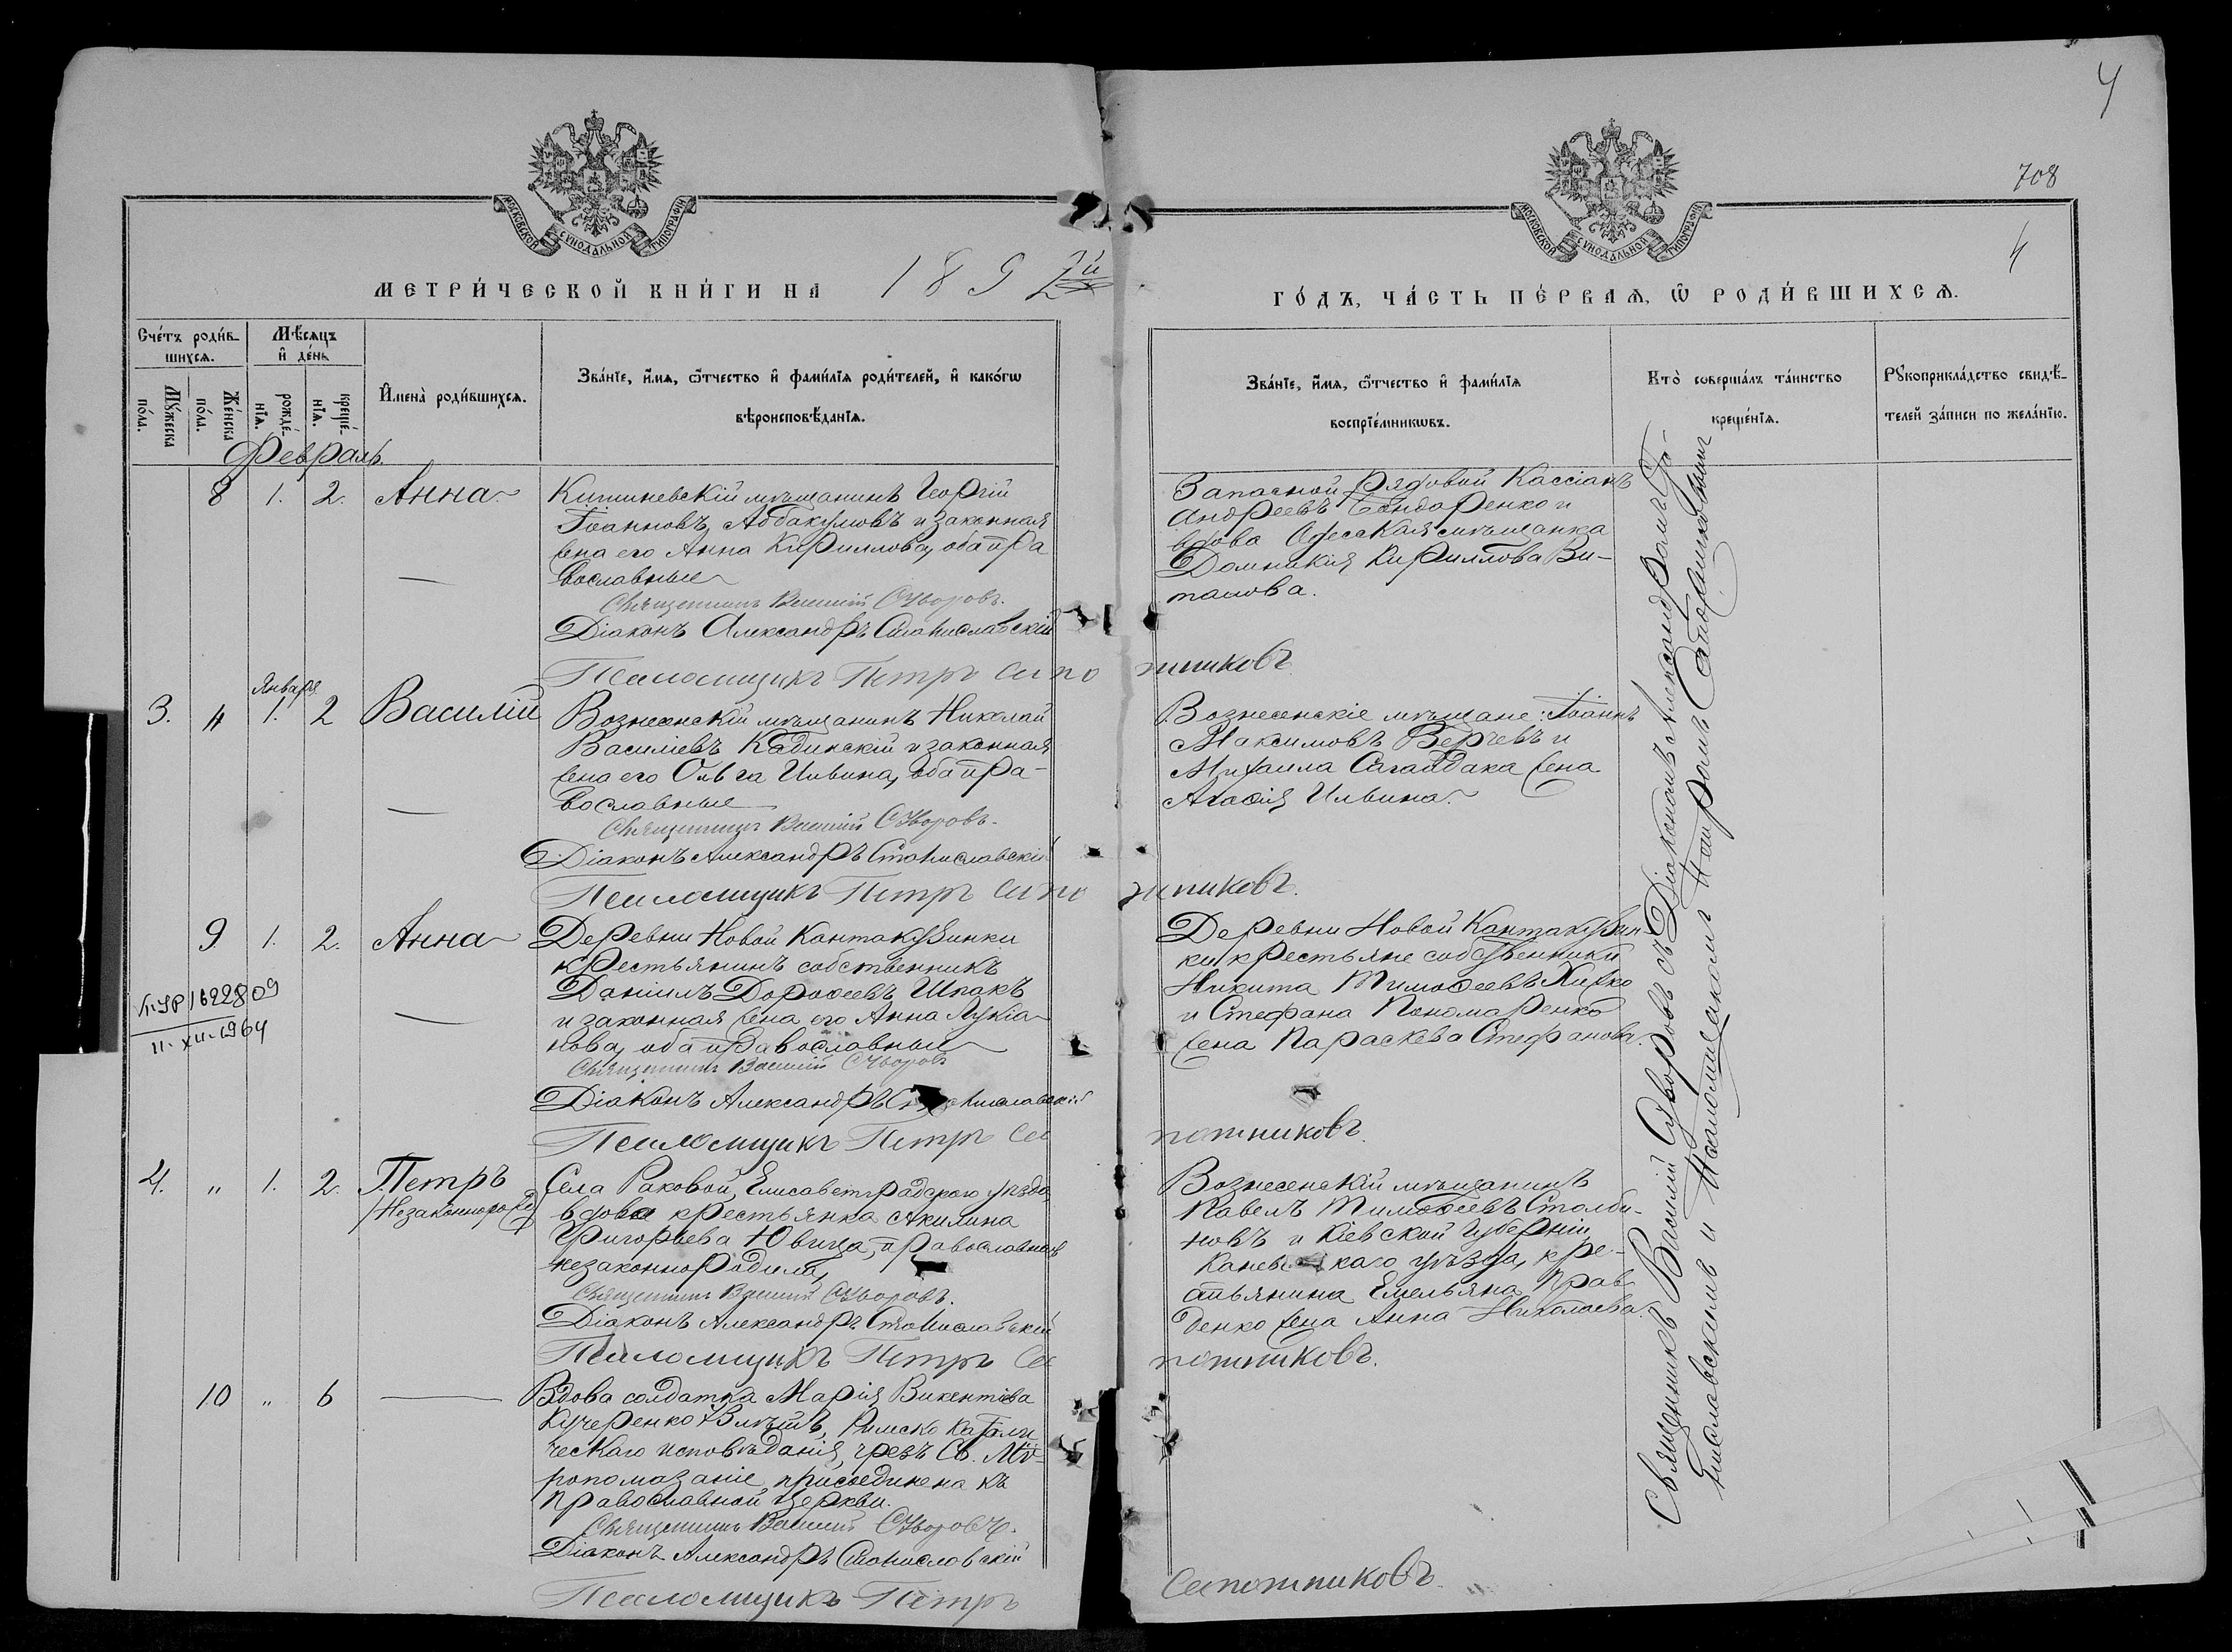 4
708
4
МОСКОВСКОЙ СѴНОДАЛЬНОЙ ТИПОГРАФІИ
МОСКОВСКОЙ СѴНОДАЛЬНОЙ ТИПОГРАФІИ
МЕТРИ́ЧЕСКОЙ КНИ́ГИ НА 1892й
ГО́ДЪ, ЧА́СТЬ ПЕ́РВАѦ, Ѽ РОДИ́ВШИХСѦ.
Сче́тъ роди́вшихсѧ.
Му́жеска по́ла.
Же́нска по́ла.
Мѣ́сѧцъ и҆ де́нь
рожде́нїѧ.
креще́нїѧ.
И҆мена̀ роди́вшихсѧ.
Зва́нїе, и҆́мѧ, ѻ҆́тчество и҆ фами́лїѧ роди́телей, и҆ како́гѡ
вѣроисповѣ́данїѧ.
Зва́нїе, и҆́мѧ, ѻ҆́тчество и҆ фами́лїѧ
воспрїе́мникѡвъ.
Кто̀ соверша́лъ та́инство
креще́нїѧ.
Рꙋкоприкла́дство свидѣ́-
телей за́писи по жела́нїю.
Февраль.
8 1. 2. Анна
Кишиневскій мѣщанинъ Георгій
Іоанновъ Аббакумовъ и законная
жена его Анна Кириллова, оба пра
вославные
Священникъ Василій Суворовъ.
Діаконъ Александръ Станиславскій
Псаломщикъ Петръ Сапожниковъ
Запасной рядовой Кассіанъ
Андреевъ Бондаренко и
вдова Одесская мѣщанка
Домникія Кириллова Ви-
танова.
Января
3. " 1. 2 Василій
Вознесенскій мѣщанинъ Николай
Василіевъ Кадинскій и законная
жена его Ольга Ильина, оба пра-
вославные
Священникъ Василій Суворовъ.
Діаконъ Александръ Станиславскій
Псаломщикъ Петръ Сапожниковъ.
Вознесенскіе мѣщане: Іоаннъ
Максимовъ Верчевъ и
Михаила Сагайдака жена
Агаѳія Ильина.
9 1. 2. Анна
Деревни Новой Кантакузинки
крестьянинъ собственникъ
Даніилъ Дороѳеевъ Шпакъ
и законная жена его Анна Лукіа-
нова, оба православные
Священникъ Василій Суворовъ
Діаконъ Александръ Станиславскій
Псаломщикъ Петръ Сапожниковъ.
1622809
11.XII.1964
Деревни Новой Кантакузин
ки крестьяне собственники
Никита Тимоѳеевъ Хитко
и Стефана Пономаренко
жена Параскева Стефанова.
4. " 1. 2. Петръ
/Незаконнорожд/
Села Раковой, Елисаветградского уѣзда,
вдова крестьянка Акилина
Григорьева Ювица, православная
незаконнородила,
Священникъ Василій Суворовъ.
Діаконъ Александръ Станиславскій
Псаломщикъ Петръ Сапожниковъ.
Вознесенскій мѣщанинъ
Павелъ Тимоѳеевъ Столби-
новъ и Кіевской губерніи,
Каневскаго уѣзда, кре-
стьянина Емельяна Прав
денко жена Анна Николаева.
10 " 6
Вдова солдатка Марія Викентіева
Кучеренко, Римско Католи
ческаго исповѣданія, чрезъ Св. Мѵ-
ропомазаніе присоединена къ
православной церкви.
Священникъ Василій Суворовъ.
Діаконъ Александръ Станиславскій
Псаломщикъ Петръ Сапожниковъ.
Священникъ Василій Суворовъ съ Діакономъ Александромъ Ста-
ниславскимъ и Псаломщикомъ Петромъ Сапожниковымъ